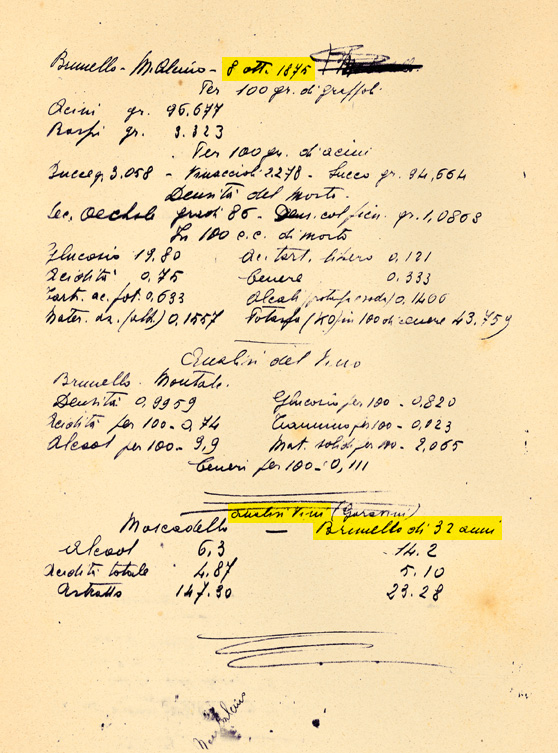 Brunello - Malcino - 8 ott. 1875
Per 100 gr. di grappoli
Acini gr. 96.677
Raspi gr. 3.323
Per 100 gr. di acini
Bucce gr. 3.058 - Vinaccioli 2.278 - Succo gr. 94,664
Densità del mosto
Sec. Oechsle gradi 86 - Dens. col picn. gr. 1,0868
In 100 c.c. di mosto
Glucosio 19,80 Ac. tart. libero 0,121
Acidità 0,75 Cenere 0,333
Tart. ac. pot. 0,633 Alcali 0,1406
Mater. az. (alb.) 0,1557 Potassa (KO) in 100 di cenere 43,759
Analisi del Vino
Brunello - Montalc.
Densità 0,9959 Glucosio per 100 - 0,820
Acidità per 100 - 0,74 Tannino per 100 - 0,123
Alcool per 100 - 9,9 Mat. solide per 100 - 2,065
Ceneri per 100 - 0,111
Analisi Vini
Moscadello — Brunello di 32 anni
Alcool 6,3 - 14.2
Acidità totale 4.87 5.10
Estratto 147.30 23.28